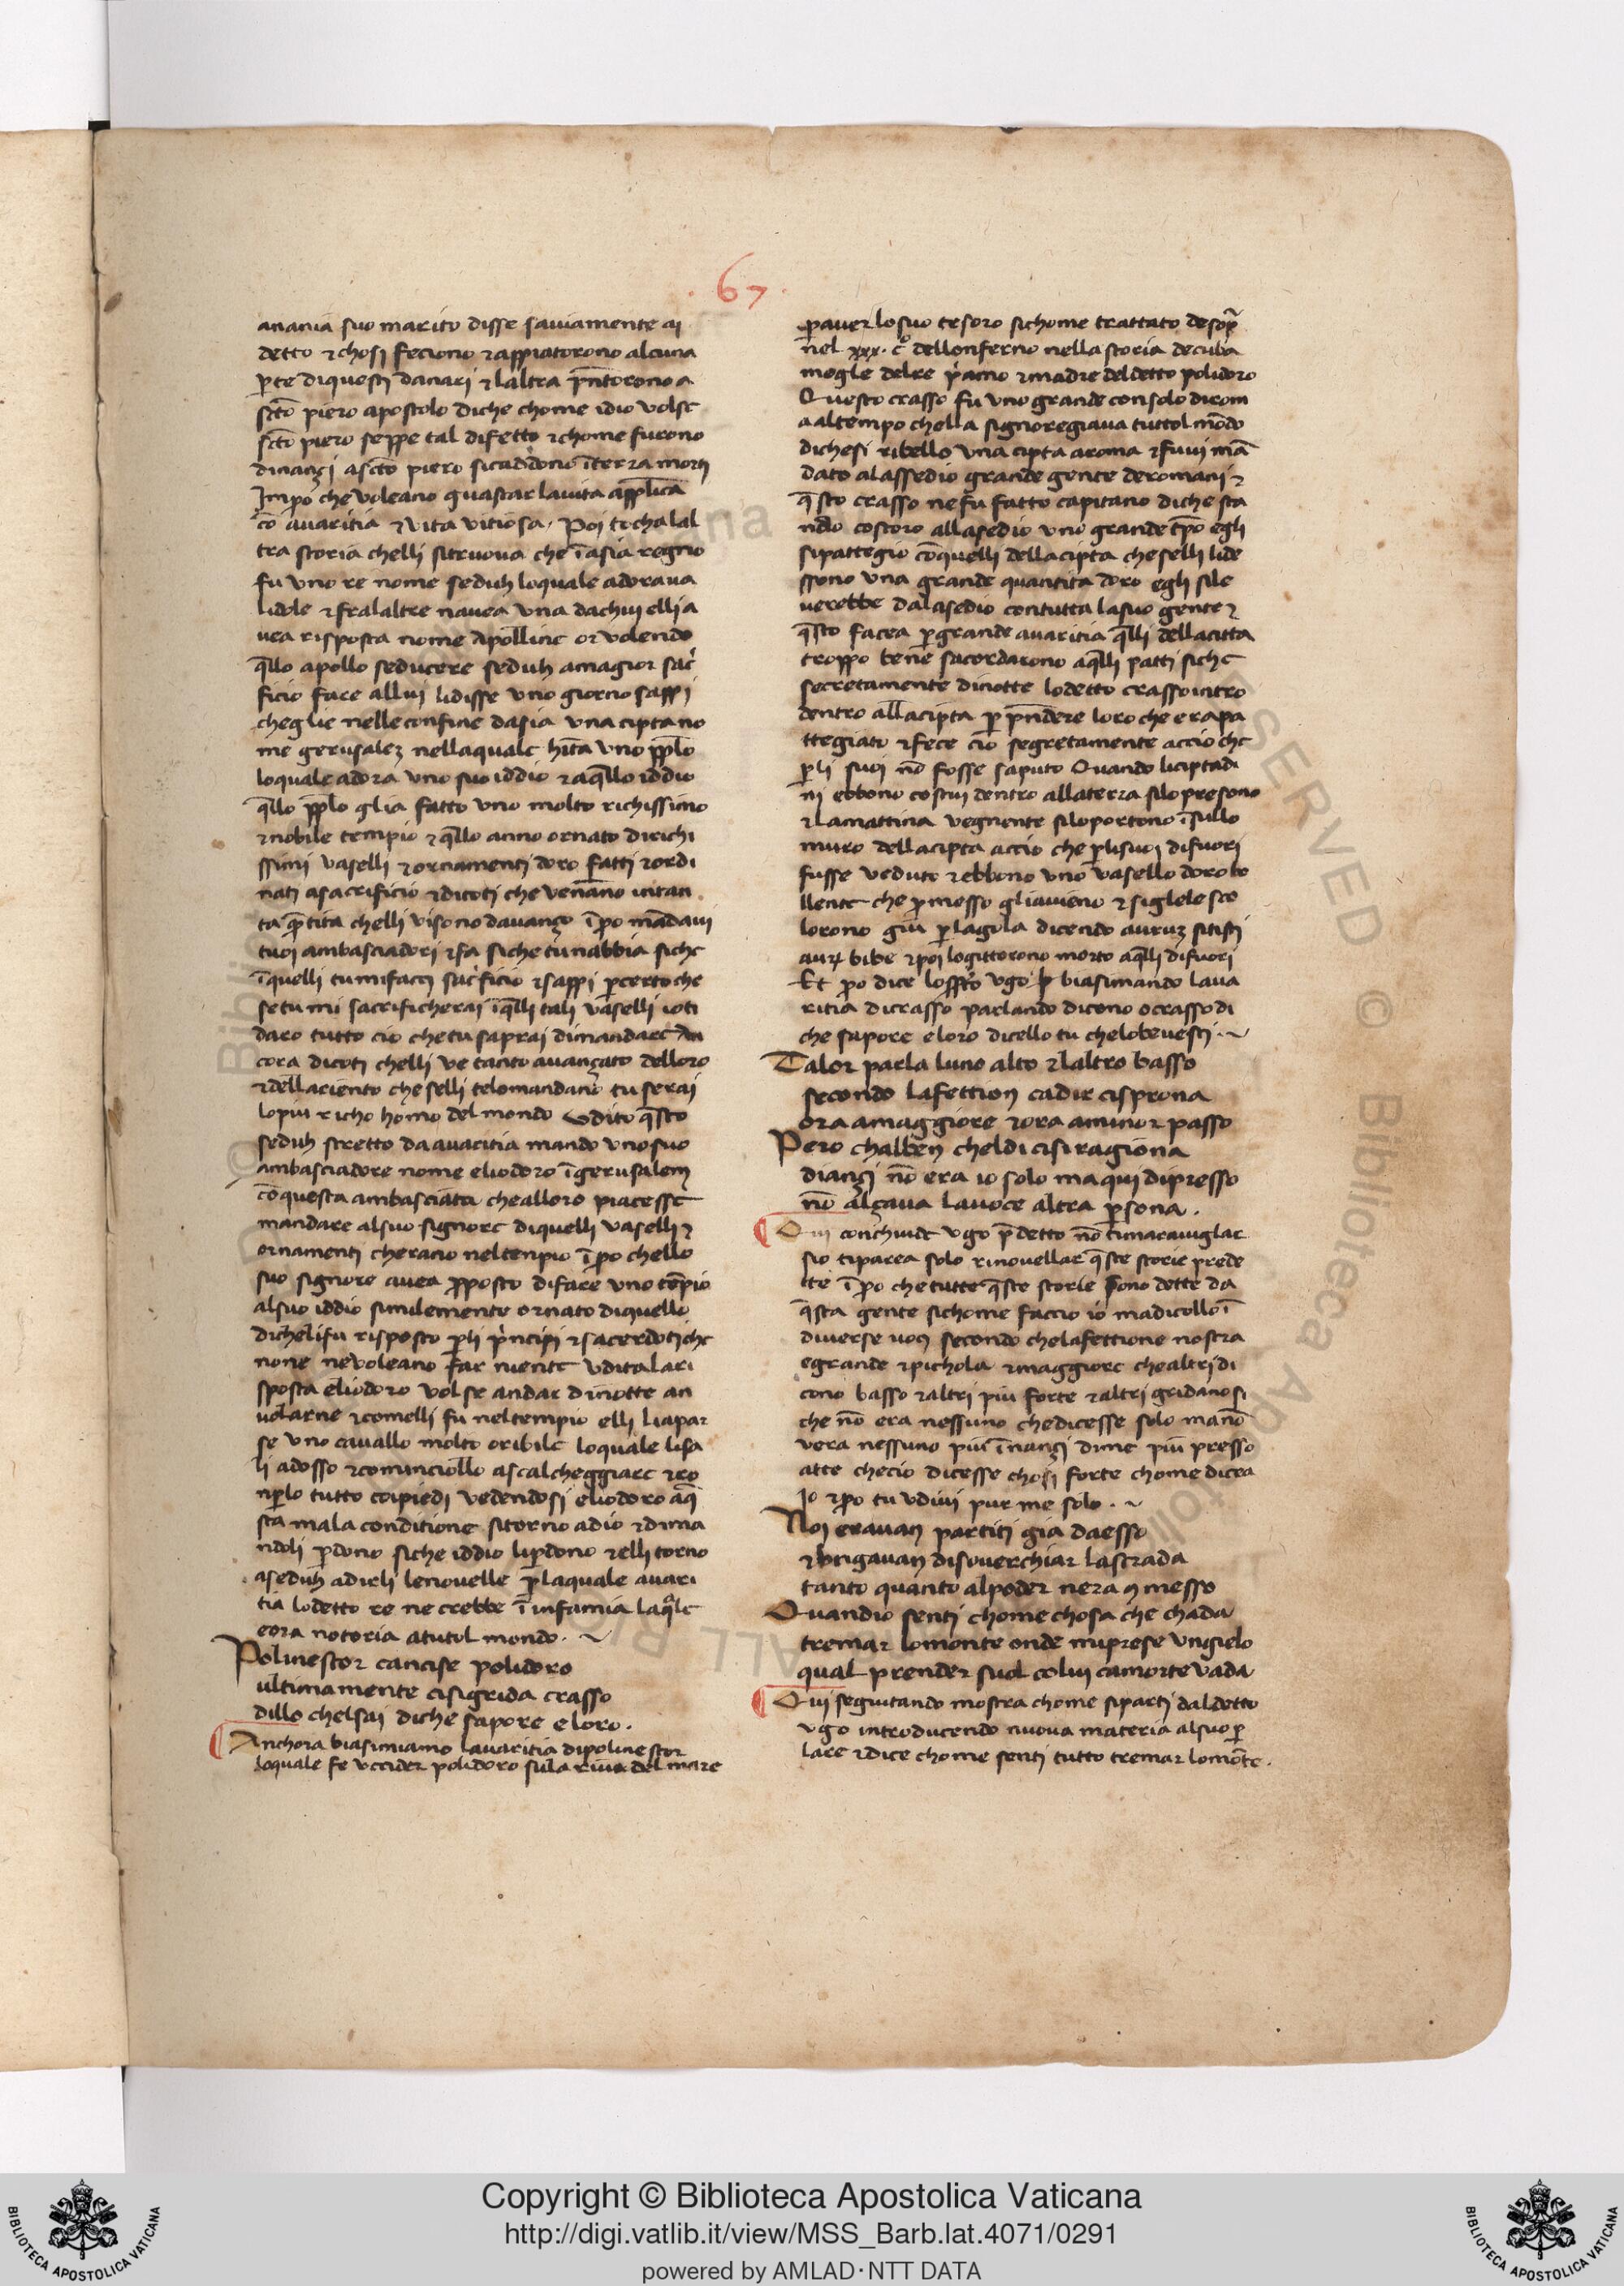 67
anania suo marito disse saviamente ai
detto ⁊ chosi feciono ⁊ appiatorono alcuna
ꝑte di questi danari ⁊ laltra p̄ntorono a
sc̄to piero apostolo diche chome idio volse
sc̄to piero seppe tal difetto ⁊ chome furono
dinanzi a sc̄to piero si cadd̄ono ī terra morti
Impo che voleano guastar la vita appl̄ica
cō avaritia ⁊ vita vitiosa. Poi tocha lal
tra storia chelli si truova che ī asia regno
fu uno re nome seduh lo quale adorava
lidole ⁊ fra laltre navea una da chui elli a
vea risposta nome Apolline or volendo
q̄llo apollo seducere seduh a magior sac̄
ficio fare allui li disse uno giorno sappi
che glie nelle confine dasia una cipta no
me gerusalez nella quale hīta uno pp̄lo
lo quale adora uno suo iddio ⁊ a q̄llo iddio
q̄llo pp̄lo glia fatto uno molto richissimo
⁊ nobile tempio ⁊ q̄llo anno ornato di richi
ssimi vaselli ⁊ ornamenti doro fatti ⁊ ordi
nati a sacrificio ⁊ dicoti che venāno in tan
ta q̄ntita chelli vi sono davanzo īpo māda vi
tuoi ambasciadori ⁊ fa siche tu nabbia siche
ī quelli tu mi facci sac̄ficio ⁊ sappi ꝑ certo che
se tu mi sacrificherai ī q̄lli tali vaselli io ti
daro tutto cio che tu saprai dimandare An
cora dicoti chelli ve tanto avanzato delloro
⁊ dellariento che selli telo mandano tu serai
lo piu richo homo del mondo Udito q̄sto
seduh stretto da avaritia mando uno suo
ambasciadore nome eliodoro ī gerusalem
cō questa ambasciata che alloro piacesse
mandare al suo signore di quelli vaselli ⁊
ornamenti cherano nel tenpio īpo chello
suo signore avea ꝓposto di fare uno tēpio
al suo iddio similemente ornato di quello
diche li fu risposto ꝑ li p̄ncipi ⁊ sacerdoti che
none ne voleano far niente Udita la ri
sposta eliodoro volse andar di notte an
volarne ⁊ comelli fu nel tempio elli li apar
se uno cavallo molto oribile lo quale li sa
li adosso ⁊ comincollo a scalcheggiare ⁊ ro
nꝑlo tutto coi piedi vedendosi eliodoro a q̄
sta mala conditione si torno a dio ⁊ dima
ndoli ꝑdono siche iddio li ꝑdono ⁊ elli torno
a seduh a dirli le novelle ꝑ la quale avari
tia lo detto re ne crebbe ī infamia la q̄le
e ora notoria a tutol mondo.
Polinestor cancise polidoro
ultimamente ci si grida crasso
dillo chel sai diche sapore e loro.
Anchora biasimiamo lavaritia di polinestor
lo quale fe uccider polidoro su la riva del mare
ꝑ aver lo suo tesoro si chome trattato de sop̄
nel xxx. c° dellonferno nella storia decuba
mogle del re p̄amo ⁊ madre del detto polidoro
Questo crasso fu uno grande consolo di rom
a al tempo chella signoregiava tuttol mōdo
diche si ribello una cipta a roma ⁊ fuvi mā
dato a lassedio grande gente de romani ⁊
q̄sto crasso ne fu fatto capitano diche sta
ndo costoro allasedio uno grande tp̄o egli
si pattegio cō quelli della cipta che selli li de
ssono una grande quantita doro egli si le
verebbe da lasedio con tutta la suo gente ⁊
q̄sto facea ꝑ grande avaritia q̄lli della citta
troppo bene sacordarono a q̄lli patti siche
secretamente di notte lo detto crasso intro
dentro alla cipta ꝑ p̄ndere loro che era pa
ttegiato ⁊ fece cio segretamente accio che
ꝑ li suoi nō fosse saputo Quando li ciptadi
ni ebbono costui dentro alla terra si lo presono
⁊ la mattina vegnente si lo portono ī sullo
muro della cipta accio che ꝑ li suoi di fuori
fusse veduto ⁊ ebbono uno vasello doro bo
llente che ꝓmesso gli avieno ⁊ si glele sco
lorono giu ꝑ la gola dicendo auruz sitisti
auꝝ bibe ⁊ poi lo gittorono morto a q̄lli di fuori
Et ꝑo dice lo spp̄to ugo biasimando lava
ritia di crasso parlando dicono o crasso di
che sapore e loro dicello tu che lo bevesti.
Talor parla luno alto ⁊ laltro basso
secondo lafettion cadir ci sprona
ora a maggiore ⁊ ora a minor passo
Pero chal ben chel di ci si ragiona
dianzi nō era io solo ma qui di presso
nō alzava la voce altra ꝑsona.
Qui conchiude ugo p̄detto nō ti maravigliar
sio ti parea solo rinovellar q̄ste storie prede
tte īpo che tutte q̄ste storie sono dette da
q̄sta gente si chome faccio io ma dicollo ī
diverse voci secondo che lafettione nostra
e grande ⁊ pichola ⁊ maggiore che altri di
cono basso ⁊ altri piu forte ⁊ altri gridano si
che nō era nessuno che dicesse solo ma nō
vera nessuno piu īnanzi di me piu presso
atte che cio dicesse chosi forte chome dicea
Io ⁊ ꝑo tu udivi pur me solo.
Noi eravan partiti gia da esso
⁊ brigavan di soverchiar la strada
tanto quanto al poder nera ꝯmesso
Quandio senti chome chosa che chada
tremar lo monte onde mi prese un gielo
qual prender suol colui ca morte vada
Qui seguitando mostra chome si parti dal detto
ugo introducendo nuova materia al suo ꝑ
lare ⁊ dice chome senti tutto tremar lo mōte.
Copyright © Biblioteca Apostolica Vaticana
http://digi.vatlib.it/view/MSS_Barb.lat.4071/0291
powered by AMLAD·NTT DATA
BIBLIOTECA APOSTOLICA VATICANA
BIBLIOTECA APOSTOLICA VATICANA